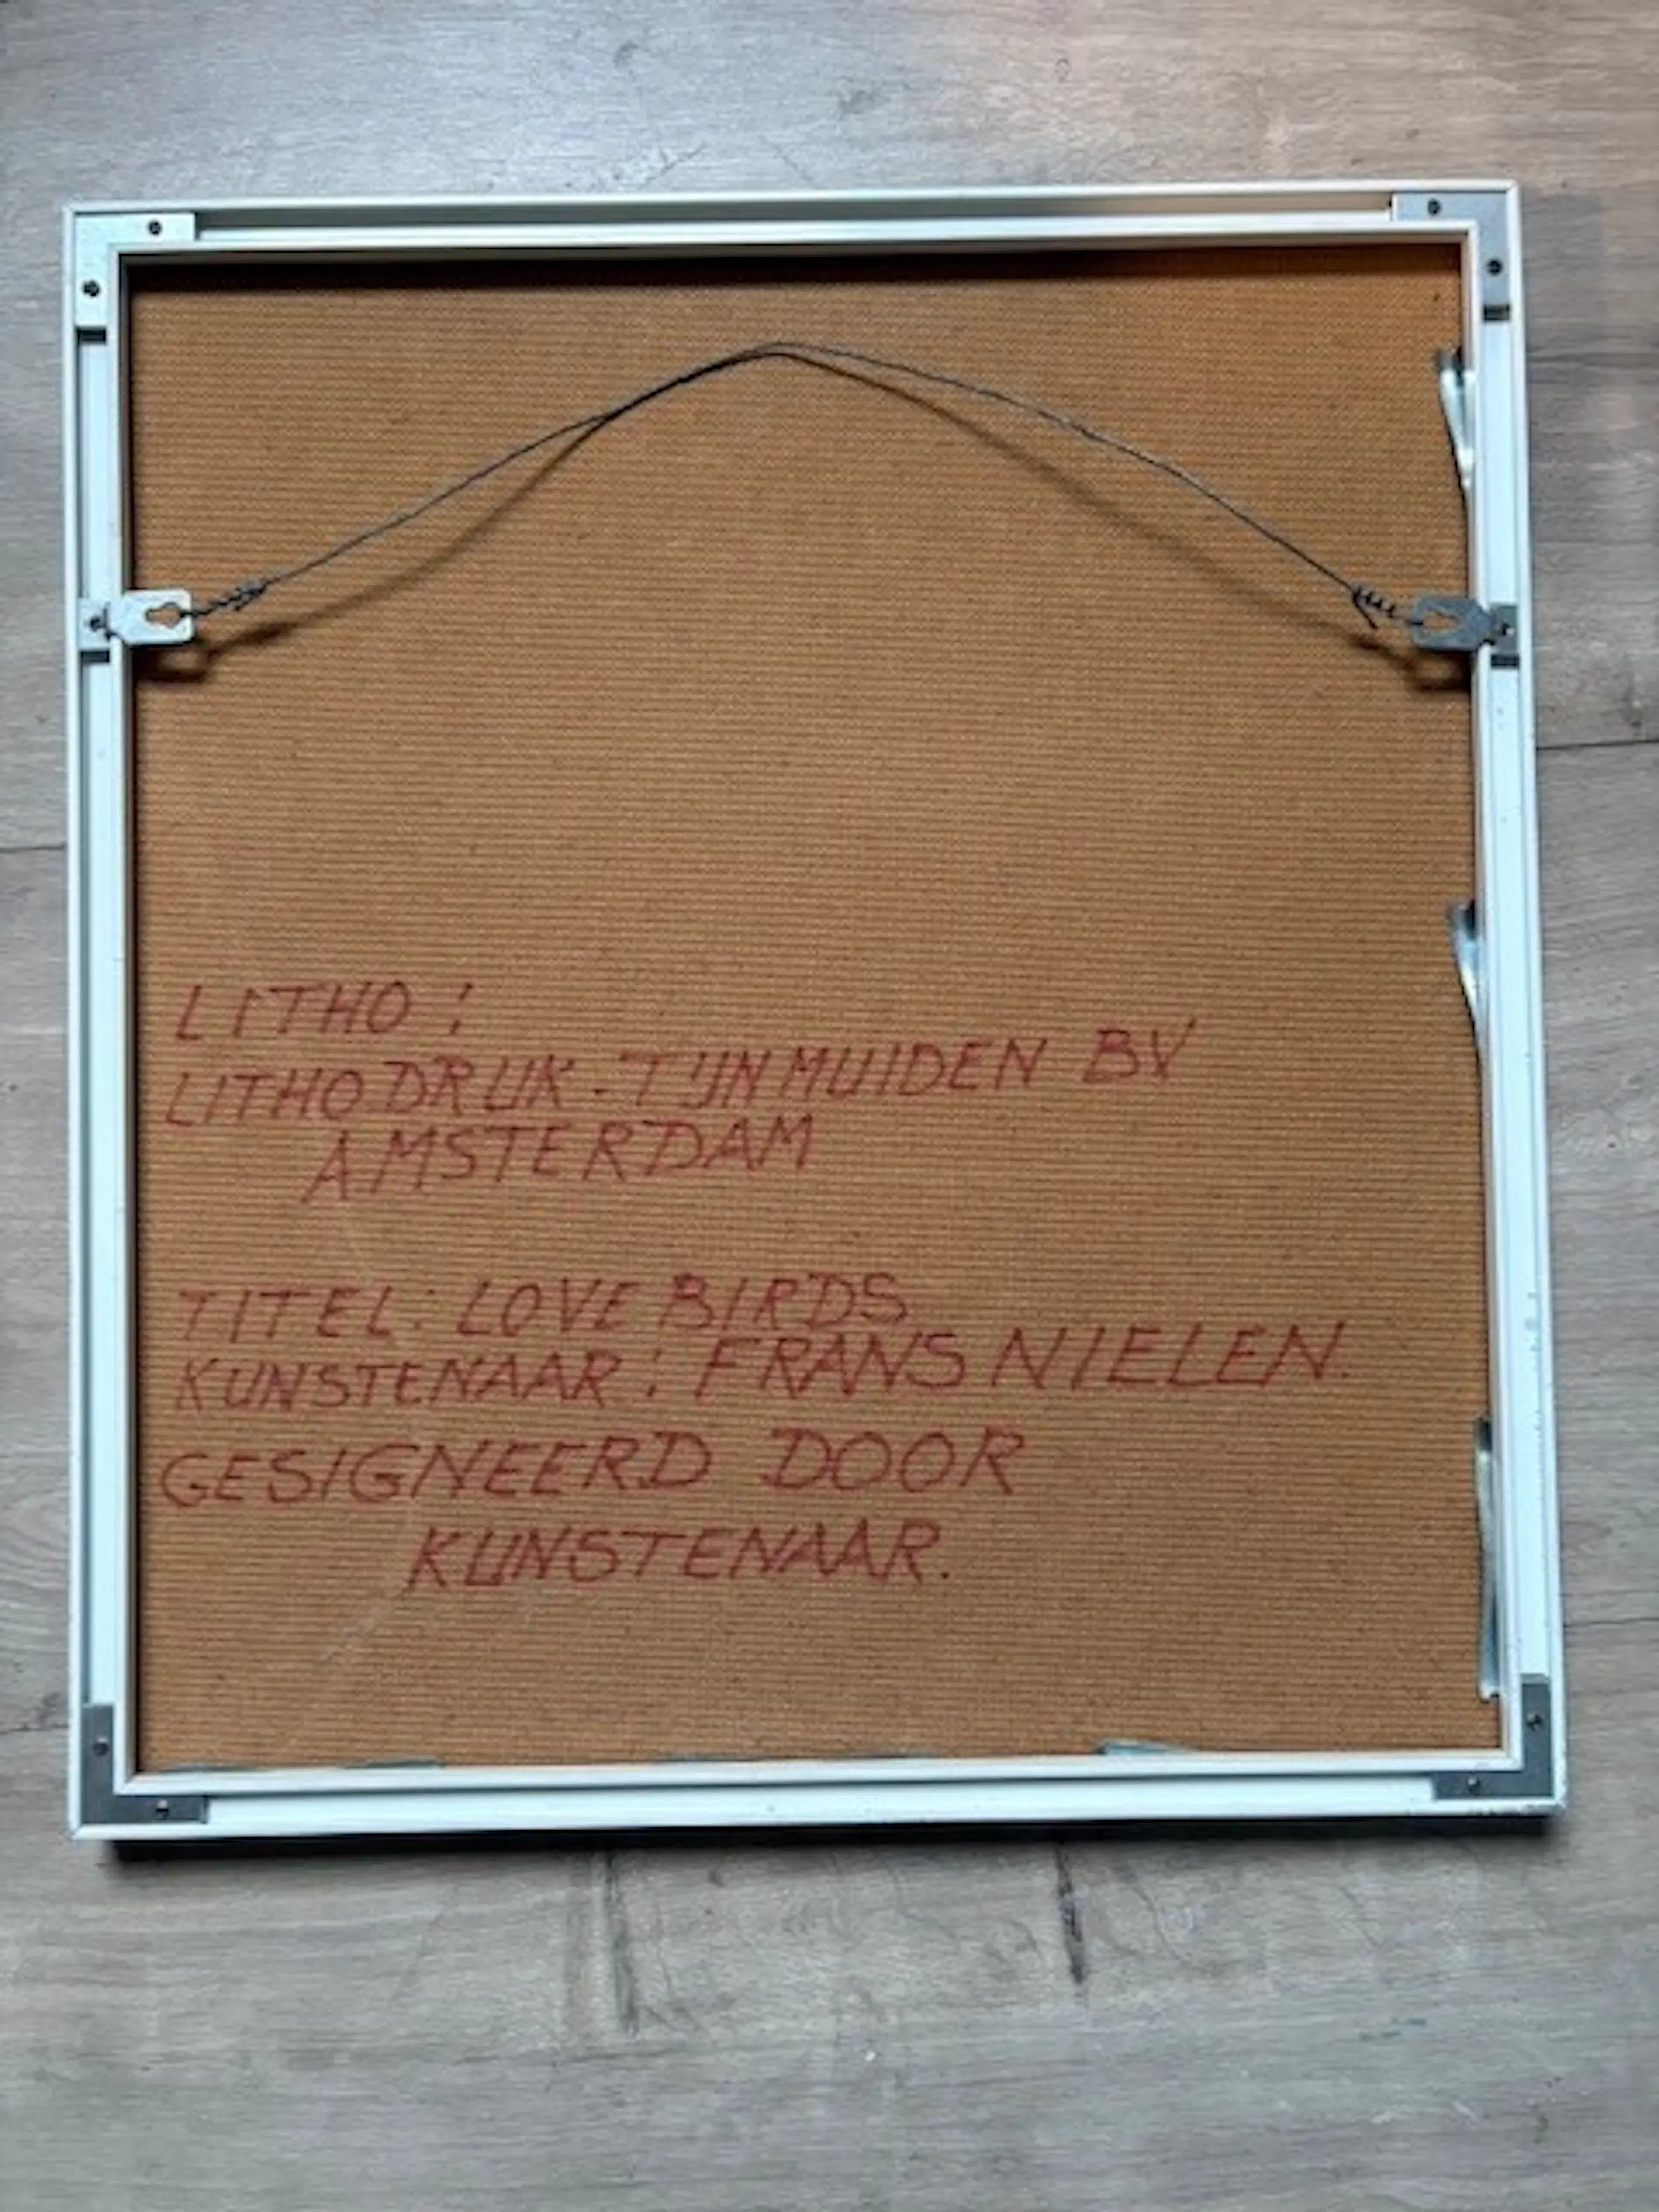 LITHO:
LITHODRUK - TIJN MUIDEN BV
AMSTERDAM
TITEL: LOVE BIRDS
KUNSTENAAR: FRANS NIELEN.
GESIGNEERD DOOR
KUNSTENAAR.